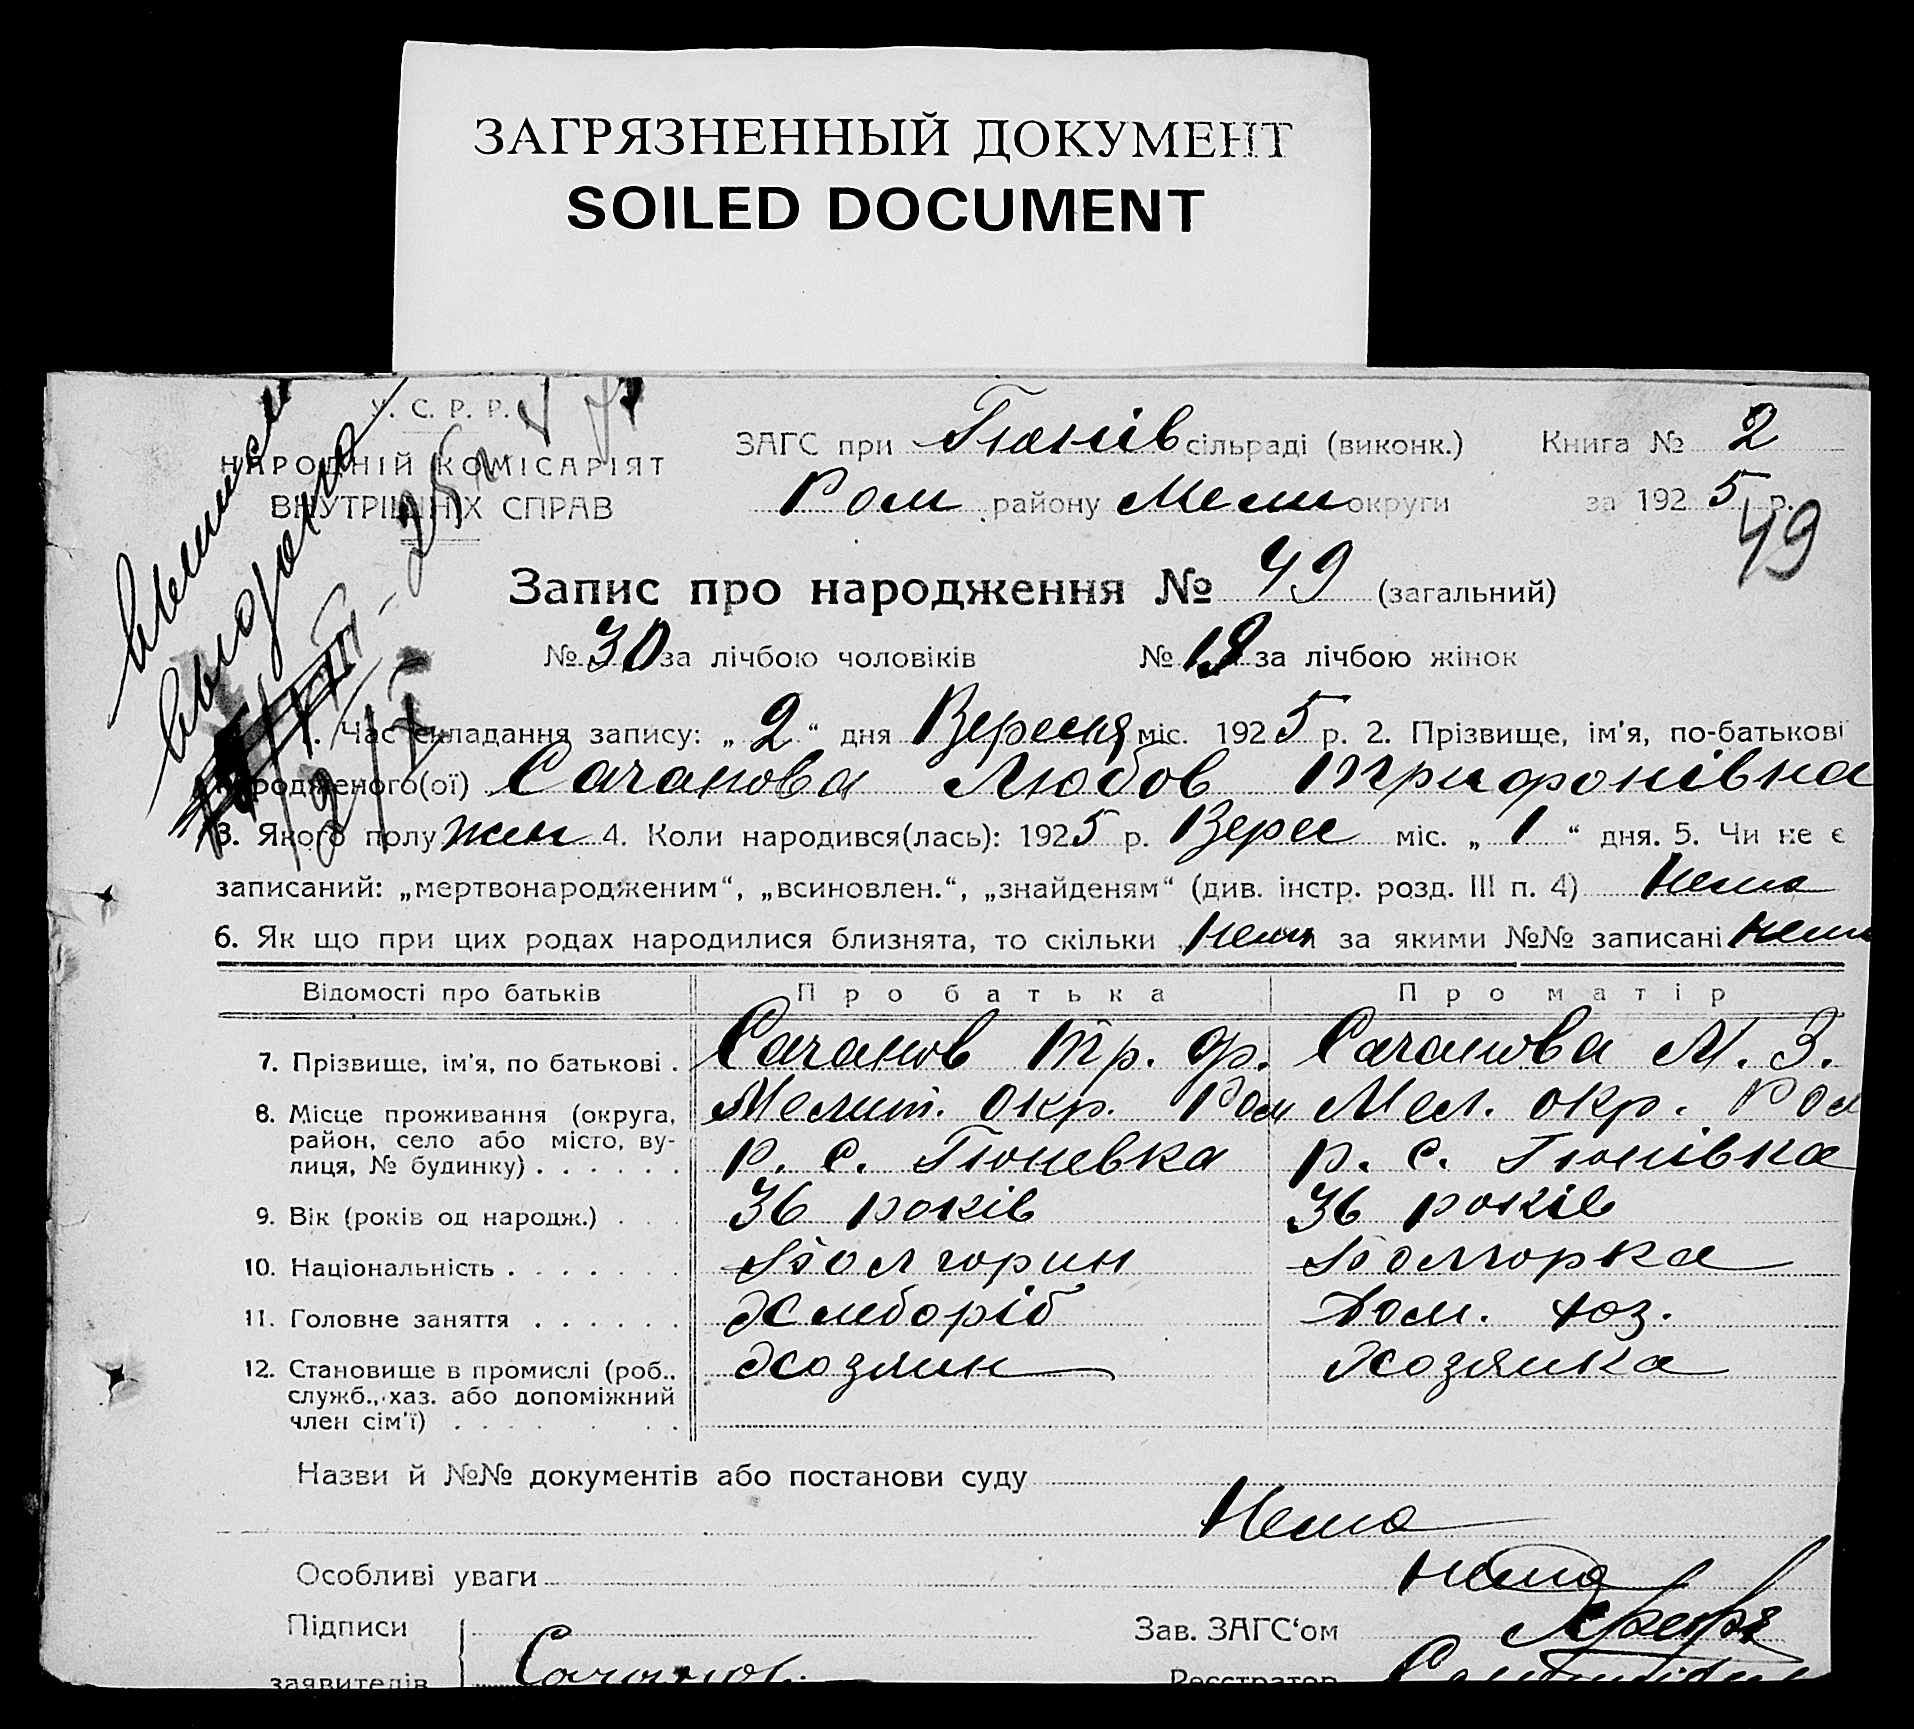 ЗАГРЯЗНЕННЫЙ ДОКУМЕНТ
SOILED DOCUMENT
У. С. Р. Р.
НАРОДНІЙ КОМІСАРІЯТ
ВНУТРІШНІХ СПРАВ
ЗАГС при Гюнів сільраді (виконк.) Книга № 2
Ром району Мели округи за 1925 р.
49
Запис про народження № 49 (загальний)
№ 30 за лічбою чоловіків № 19 за лічбою жінок
1. Час складання запису: „ 2 “ дня Вересня міс. 1925 р. 2. Прізвище, ім'я, по-батькові
народженого(ої) Сачанова Любов Трифонівна
3. Якого полу жин 4. Коли народився(лась): 1925 р. Верес міс. „ 1 “ дня. 5. Чи не є
записаний: „мертвонародженим“, „всиновлен.“, „знайденям“ (див. інстр. розд. III п. 4) нема
6. Як що при цих родах народилися близнята, то скільки нема за якими №№ записані нема
Відомості про батьків Про батька Про матір
7. Прізвище, ім'я, по батькові . Сачанов Тр. Ф. Сачанова М. З.
8. Місце проживання (округа, Мелит. Окр. Ром Мел. окр. Ром
район, село або місто, ву-
лиця, № будинку) . . . . . . р. с. Гюневка р. с. Гюнівка
9. Вік (років од народж.) . . . 36 років 36 років
10. Національність . . . . . . . Болгорин Болгорка
11. Головне заняття . . . . . . Хлеборіб Дом. хоз.
12. Становище в промислі (роб., Хозяин Хозяика
служб., хаз. або допоміжний
член сім'ї) . . . . . . .
Назви й №№ документів або постанови суду
Нема
Особливі уваги нема
Підписи Зав. ЗАГС‘ом
заявителів Сачанов Реєстратор